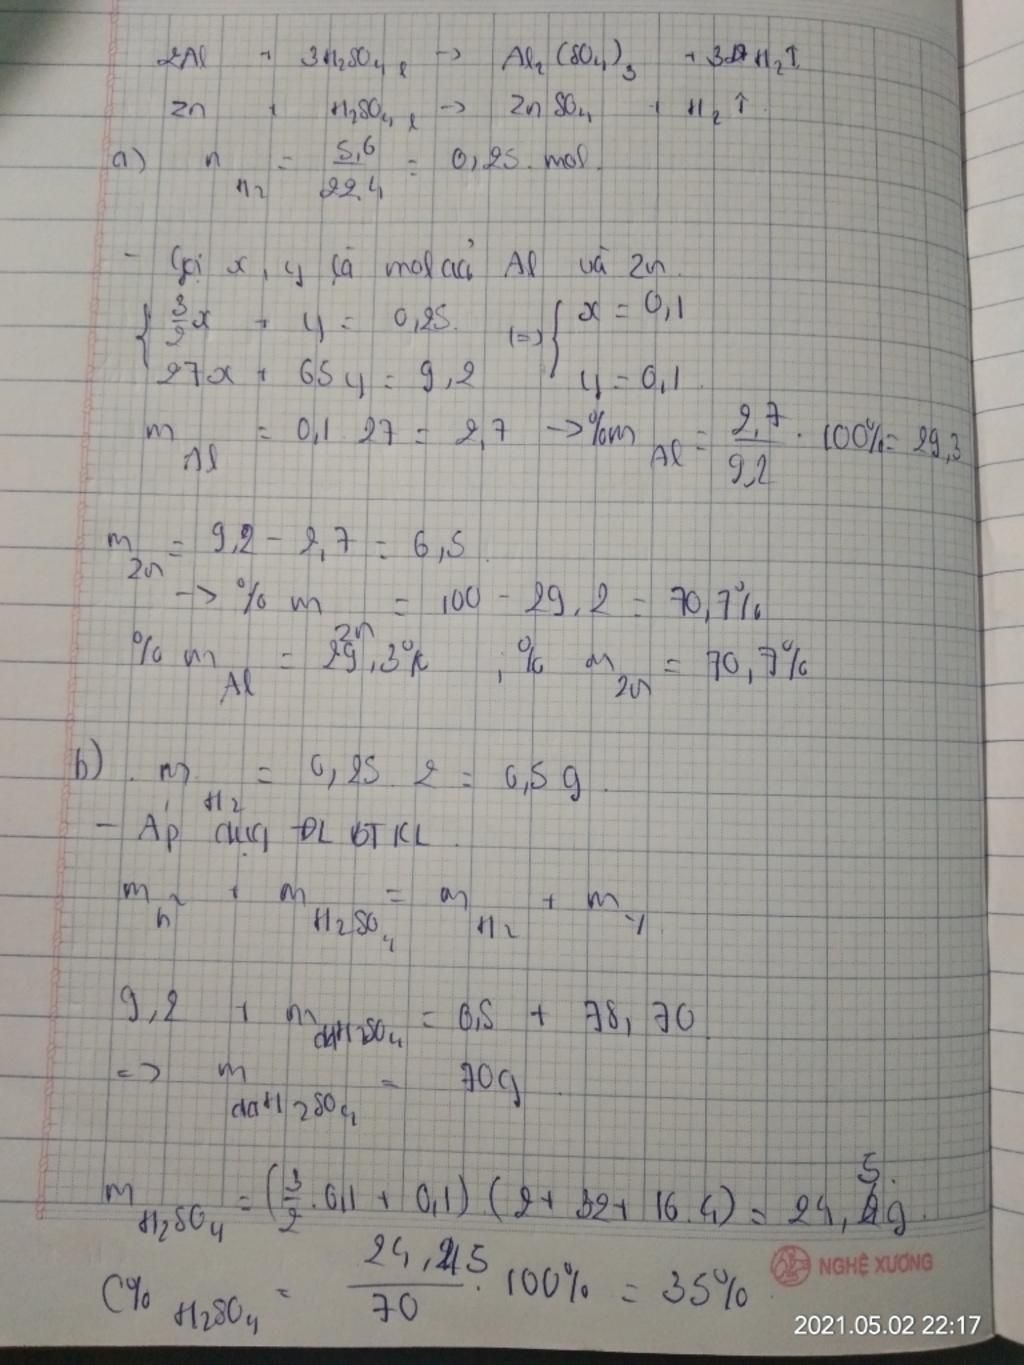 2Al + 3H₂SO₄ l → Al₂(SO₄)₃ + 3H₂↑
Zn + H₂SO₄ l → ZnSO₄ + H₂↑
a) n H₂ = 5,6/22,4 = 0,25 mol.
- Gọi x, y là mol của Al và Zn.
{ 3/2x + y = 0,25. (=> { x = 0,1
27x + 65y = 9,2 y = 0,1.
m Al = 0,1.27 = 2,7 → %m Al = 2,7/9,2 . 100% = 29,3
m Zn = 9,2 - 2,7 = 6,5.
→ % m Zn = 100 - 29,2 = 70,7%
% m Al = 29,3% ; % m Zn = 70,7%
b) m H₂ = 0,25 . 2 = 0,5 g.
- Áp dụng ĐL BTKL.
m h² + m H₂SO₄ = m H₂ + m Y
9,2 + m ddH₂SO₄ = 0,5 + 78,70
=> m ddH₂SO₄ = 70g.
m H₂SO₄ = (3/2.0,1 + 0,1) (2 + 32 + 16.4) = 24,5g.
C% H₂SO₄ = 24,5/70 . 100% = 35%.
NGHỆ XƯƠNG
2021.05.02 22:17